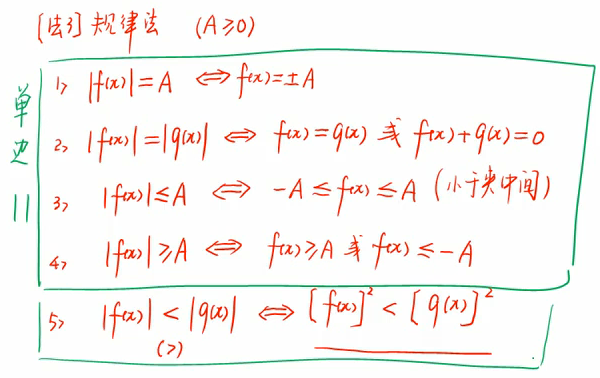 [法3] 规律法 (A≥0)
单边 ||
1> |f(x)|=A ⇔ f(x)=±A
2> |f(x)|=|g(x)| ⇔ f(x)=g(x) 或 f(x)+g(x)=0
3> |f(x)|≤A ⇔ -A≤f(x)≤A (小于夹中间)
4> |f(x)|≥A ⇔ f(x)≥A 或 f(x)≤-A
5> |f(x)|<|g(x)| ⇔ [f(x)]²<[g(x)]²
(>)